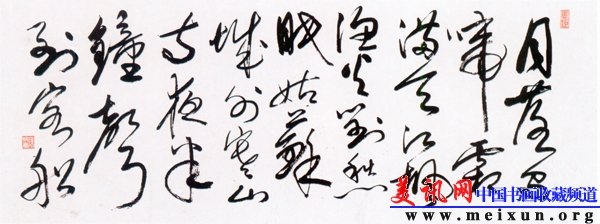 月落烏
啼霜
滿天江楓
漁火對愁
眠姑蘇
城外寒山
寺夜半
鐘聲
到客船
美讯网 中国书画收藏频道
www.meixun.org